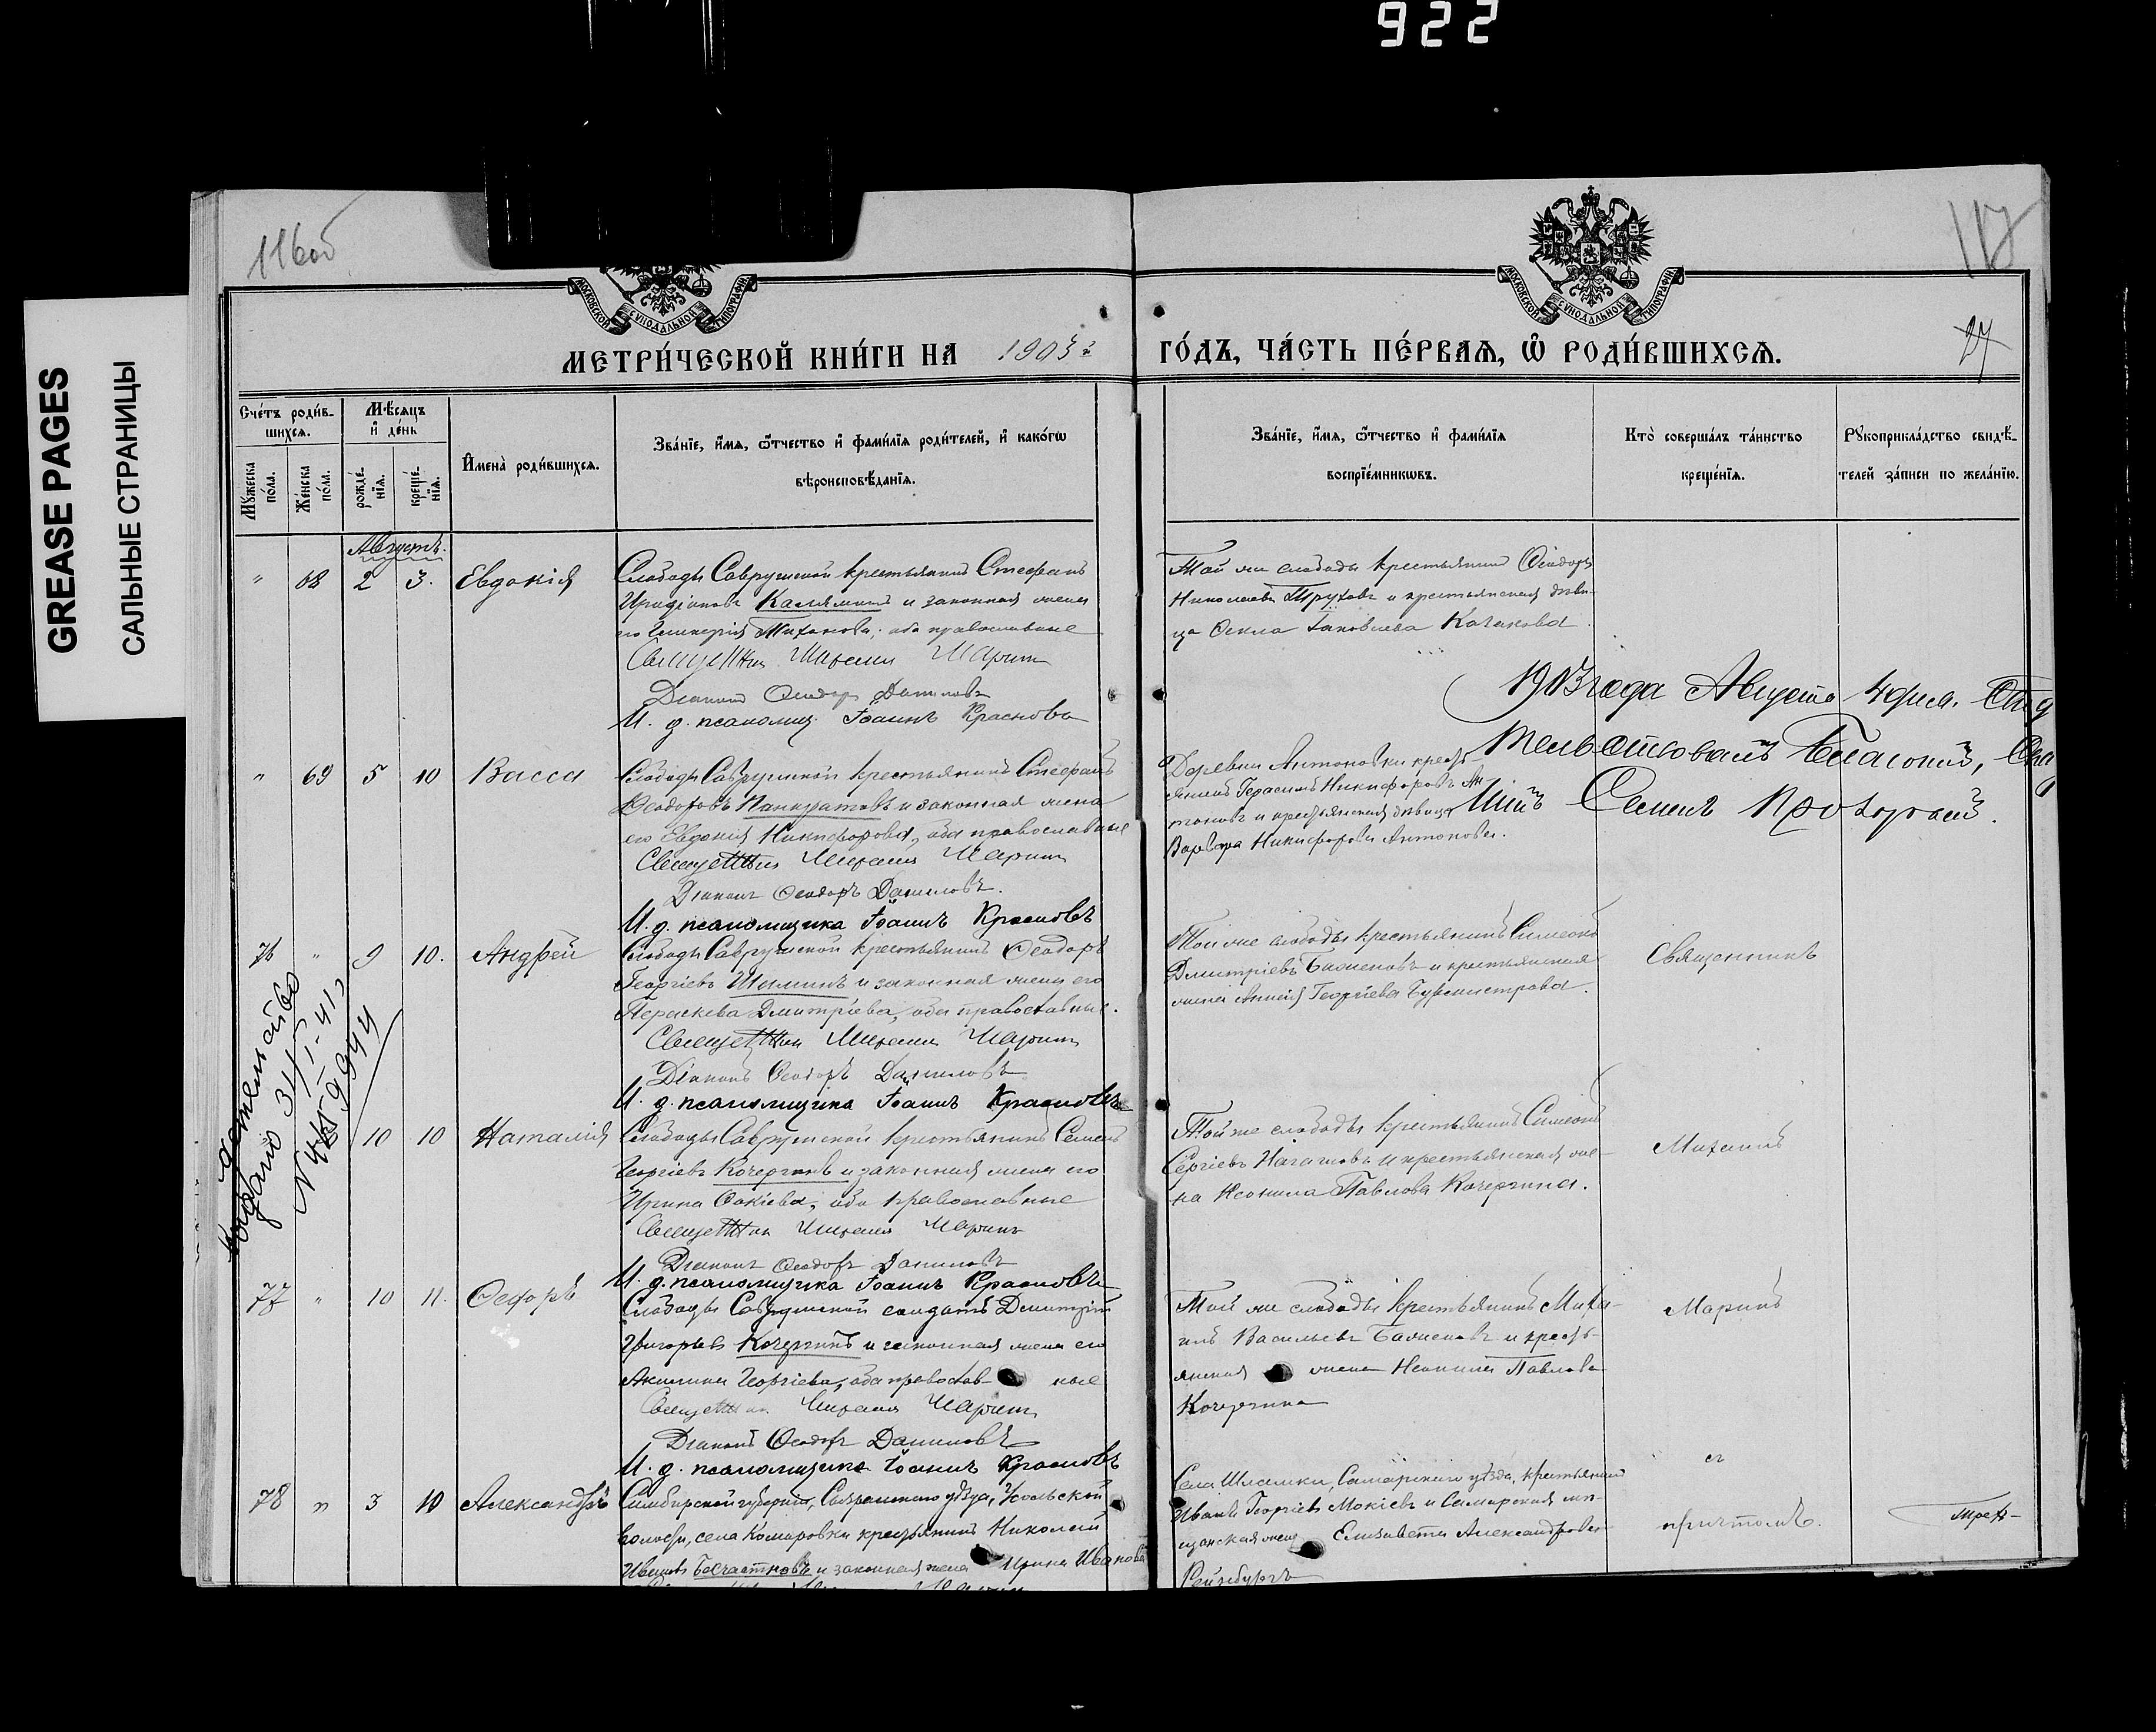 922
GREASE PAGES
САЛЬНЫЕ СТРАНИЦЫ
116об
117
27
МОСКОВСКОЙ СѴНОДАЛЬНОЙ ТИПОГРАФІИ
МОСКОВСКОЙ СѴНОДАЛЬНОЙ ТИПОГРАФІИ
МЕТРИ́ЧЕСКОЙ КНИ́ГИ НА 1903 г
ГО́ДЪ, ЧА́СТЬ ПЕ́РВАѦ, Ѽ РОДИ́ВШИХСѦ.
Сче́тъ роди́в-
шихсѧ.
Мꙋжеска по́ла.
Же́нска по́ла.
Мѣ́сѧцъ и҆ де́нь
рожде́-нїѧ.
креще́-нїѧ.
И҆мена̀ роди́вшихсѧ.
Зва́нїе, и҆́мѧ, ѻ҆́тчество и҆ фами́лїѧ роди́телей, и҆ како́гѡ
вѣроисповѣ́данїѧ.
Зва́нїе, и҆́мѧ, ѻ҆́тчество и҆ фами́лїѧ
воспрїе́мникѡвъ.
Кто̀ соверша́лъ та́инство
креще́нїѧ.
Рꙋкоприкла́дство свидѣ́-
телей за́писи по жела́нїю.
Августъ.
" 68 2 3. Евдокія
Слободы Саврушской крестьянинъ Стефанъ
Каляминъ и законная жена
его Тиханова; оба православные
Священникъ Михаилъ Маринъ
Діаконъ Ѳеодоръ Даниловъ
И. д. псаломщ. Іоаннъ Красновъ
Той же слободы крестьянинъ Ѳеодоръ
Николаевъ Труховъ и крестьянская дѣви-
ца Ѳекла Іаковлева Качакова.
1903 года Августа 4 дня.
Семенъ
" 69 5 10 Васса
Слободы Саврушской крестьянинъ Стефанъ
Ѳеодоровъ Панкратовъ и законная жена
его Евдокія Никифорова, оба православные
Священникъ Михаилъ Маринъ
Діаконъ Ѳеодоръ Даниловъ.
И. д. псаломщика Іоаннъ Красновъ
Деревни Антоновки кресть-
янинъ Герасимъ Никифоровъ Ан-
тоновъ и крестьянская дѣвица
Варвара Никифорова Антонова.
76 " 9 10. Андрей
Слободы Саврушской крестьянинъ Ѳеодоръ
Георгіевъ Шаминъ и законная жена его
Параскева Дмитріева, оба православные.
Священникъ Михаилъ Маринъ
Діаконъ Ѳеодоръ Даниловъ
И. д. псаломщика Іоаннъ Красновъ
Той же слободы крестьянинъ Симеонъ
Дмитріевъ Баженовъ и крестьянская
жена Георгіева Бурмистрова.
Священникъ
10 10 Наталія
Слободы Саврушской крестьянинъ Семенъ
Георгіевъ Кочергинъ и законная жена его
Ирина Фокіева, оба православные
Священникъ Михаилъ Маринъ
Діаконъ Ѳеодоръ Даниловъ
И. д. псаломщика Іоаннъ Красновъ
Той же слободы крестьянинъ Симеонъ
Сергіевъ и крестьянская же-
на Неонила Павлова Кочергина.
Михаилъ
77 " 10 11. Ѳеодоръ
Слободы Саврушской солдатъ Дмитрій
Григорьевъ Кочергинъ и законная жена его
Акилина Георгіева, оба православ-ные
Священникъ Михаилъ Маринъ
Діаконъ Ѳеодоръ Даниловъ
И. д. псаломщика Іоаннъ Красновъ
Той же слободы крестьянинъ Миха-
илъ Васильевъ Баженовъ и кресть-
янская жена Неонила Павлова
Кочергина
Маринъ
съ
78 " 3 10 Александръ
Симбирской губерніи, Сызранскаго уѣзда, Усольской
волости, села Комаровки крестьянинъ Николай
Ивановъ Безчастновъ и законная жена Ирина Иванова
Села Шламки, Самарскаго уѣзда, крестьянинъ
Иванъ Георгіевъ Мокіевъ и Самарская мѣ-
щанская жена Елизавета Александрова
Рейзбургъ
причтомъ.